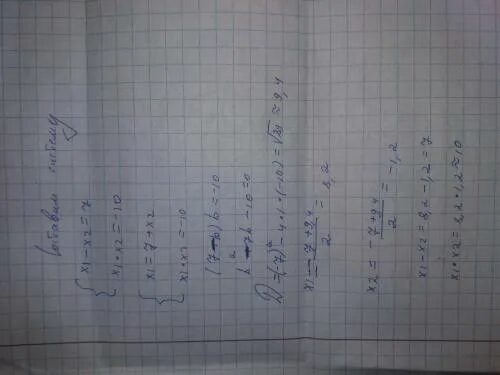 Составим систему
{ x1 - x2 = 7
{ x1 * x2 = -10
{ x1 = 7 + x2
{ x1 * x2 = -10
(7-b) b = -10
b² - 7b - 10 = 0
D = (-7)² - 4 * 1 * (-10) = √89 ≈ 9,4
x1 = 7 + 9,4 / 2 = 8,2
x2 = -7 + 9,4 / 2 = -1,2
x1 - x2 = 8,2 - 1,2 = 7
x1 * x2 = 8,2 * 1,2 ≈ 10